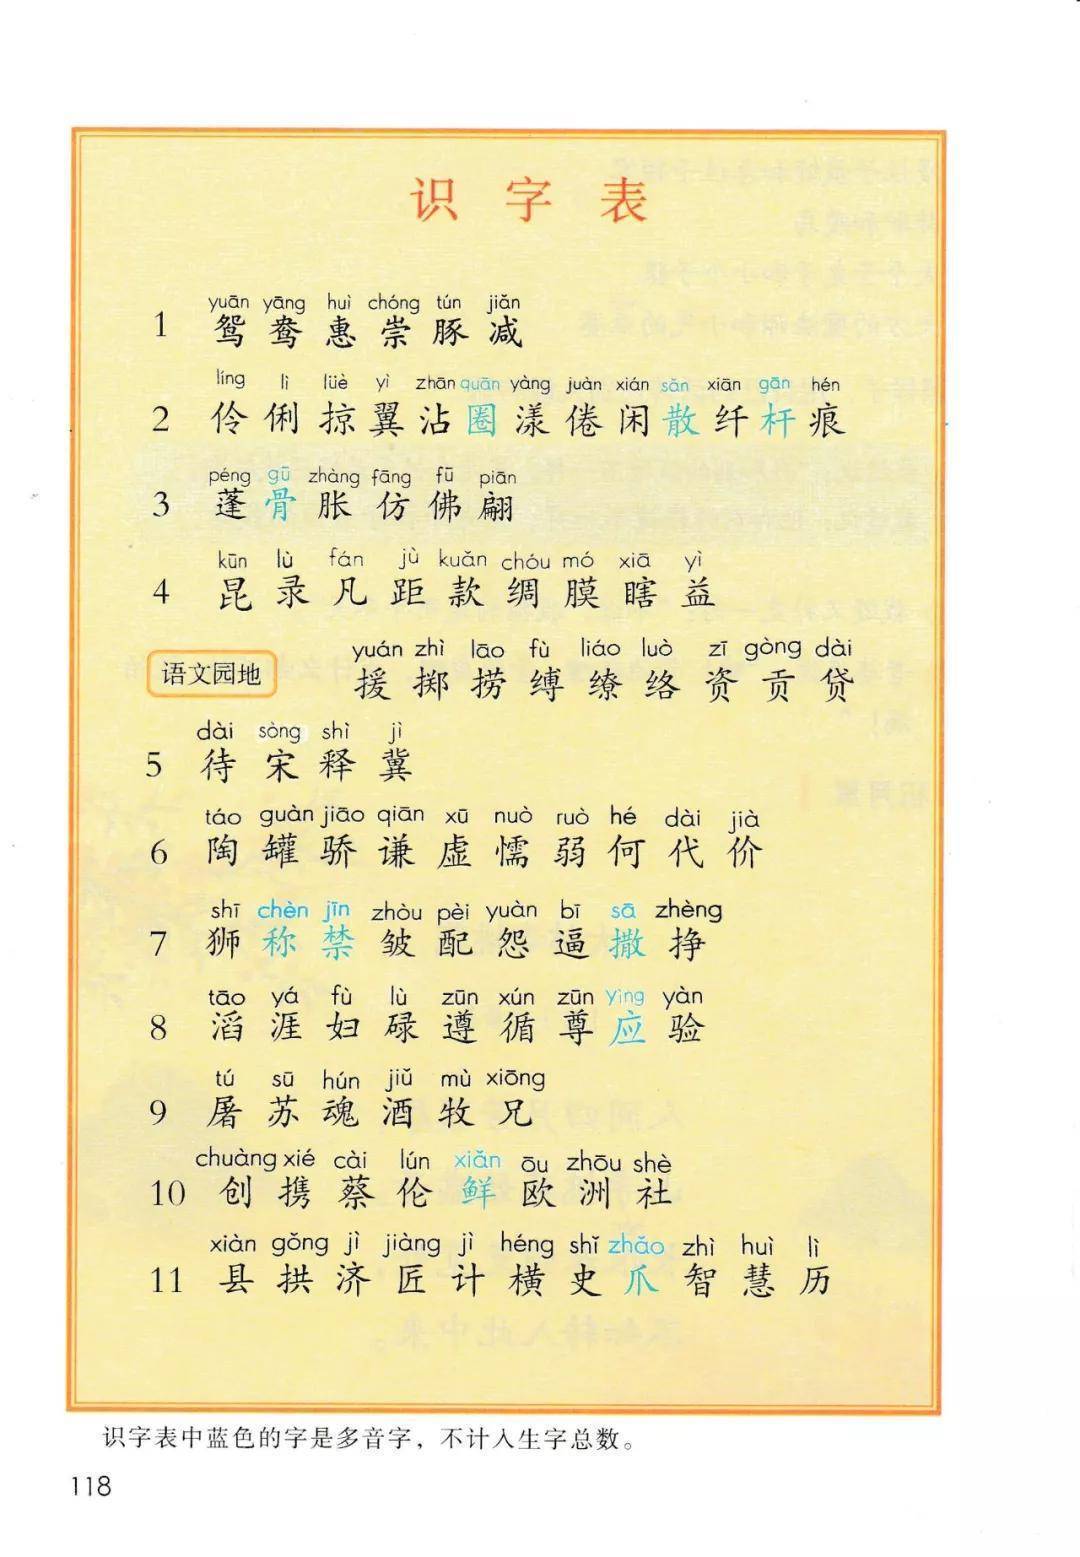 识字表
yuān yāng huì chóng tún jiǎn
1 鸳鸯惠崇豚减
líng lì lüè yì zhān quān yàng juàn xián sǎn xiān gān hén
2 伶俐掠翼沾圈漾倦闲散纤杆痕
péng gū zhàng fǎng fú piān
3 蓬骨胀仿佛翩
kūn lù fán jù kuǎn chóu mó xiā yì
4 昆录凡距款绸膜瞎益
yuán zhì lāo fù liáo luò zī gòng dài
语文园地 援掷捞缚缭络资贡贷
dài sòng shì jì
5 待宋释冀
táo guàn jiāo qiān xū nuò ruò hé dài jià
6 陶罐骄谦虚懦弱何代价
shī chèn jīn zhòu pèi yuàn bī sā zhèng
7 狮称禁皱配怨逼撒挣
tāo yá fù lù zūn xún zūn yìng yàn
8 滔涯妇碌遵循尊应验
tú sū hún jiǔ mù xiōng
9 屠苏魂酒牧兄
chuàng xié cài lún xiǎn ōu zhōu shè
10 创携蔡伦鲜欧洲社
xiàn gǒng jì jiàng jì héng shǐ zhǎo zhì huì lì
11 县拱济匠计横史爪智慧历
识字表中蓝色的字是多音字，不计入生字总数。
118